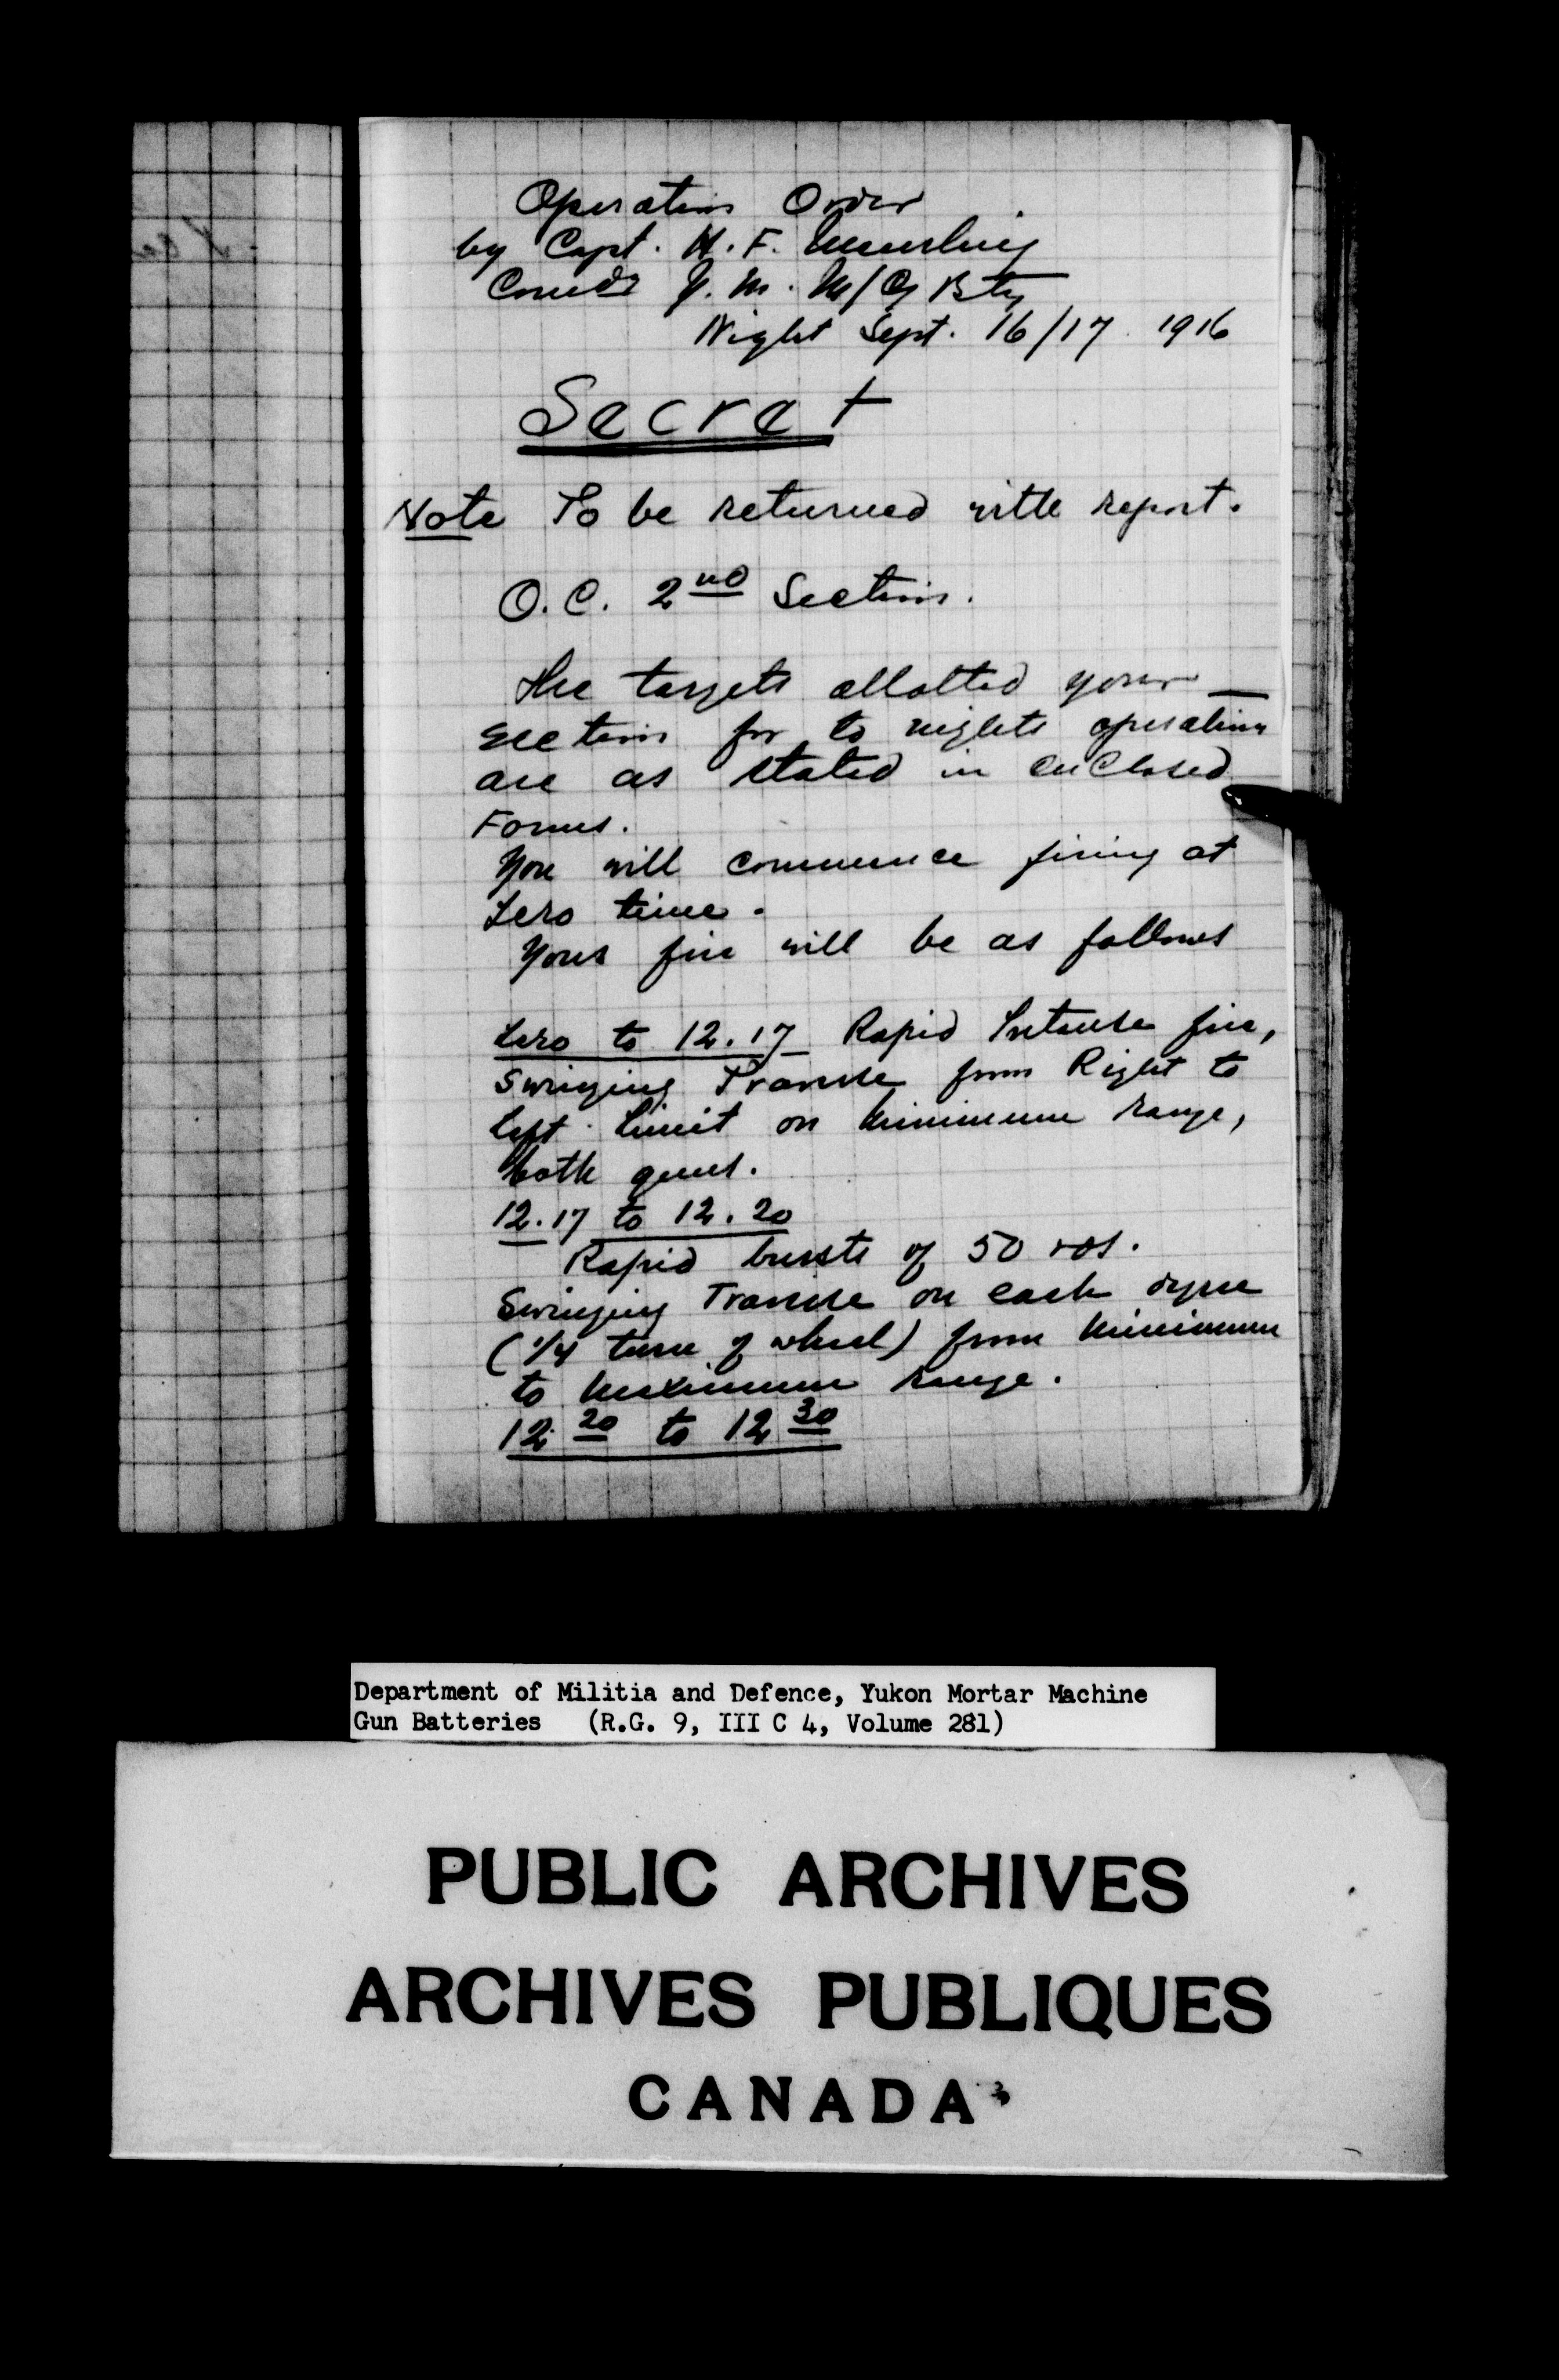 Operation Order
by Capt. H. F. Meurling
Comdg Y. M. M/G Bty
Night Sept. 16/17 1916
Secret
Note To be returned with report.
O.C. 2nd Section.
The targets allotted your
section for to nights operation
are as stated in enclosed
Forms.
You will commence firing at
Zero time.
Your fire will be as follows
Zero to 12.17 Rapid Intense fire,
Swinging Traverse from Right to
left limit on minimum range,
both guns.
12.17 to 12.20
Rapid bursts of 50 rds.
Swinging Traverse on each
(1/4 turn of wheel) from minimum
to maximum range.
12 20 to 12 30
Department of Militia and Defence, Yukon Mortar Machine
Gun Batteries (R.G. 9, III C 4, Volume 281)
PUBLIC ARCHIVES
ARCHIVES PUBLIQUES
CANADA